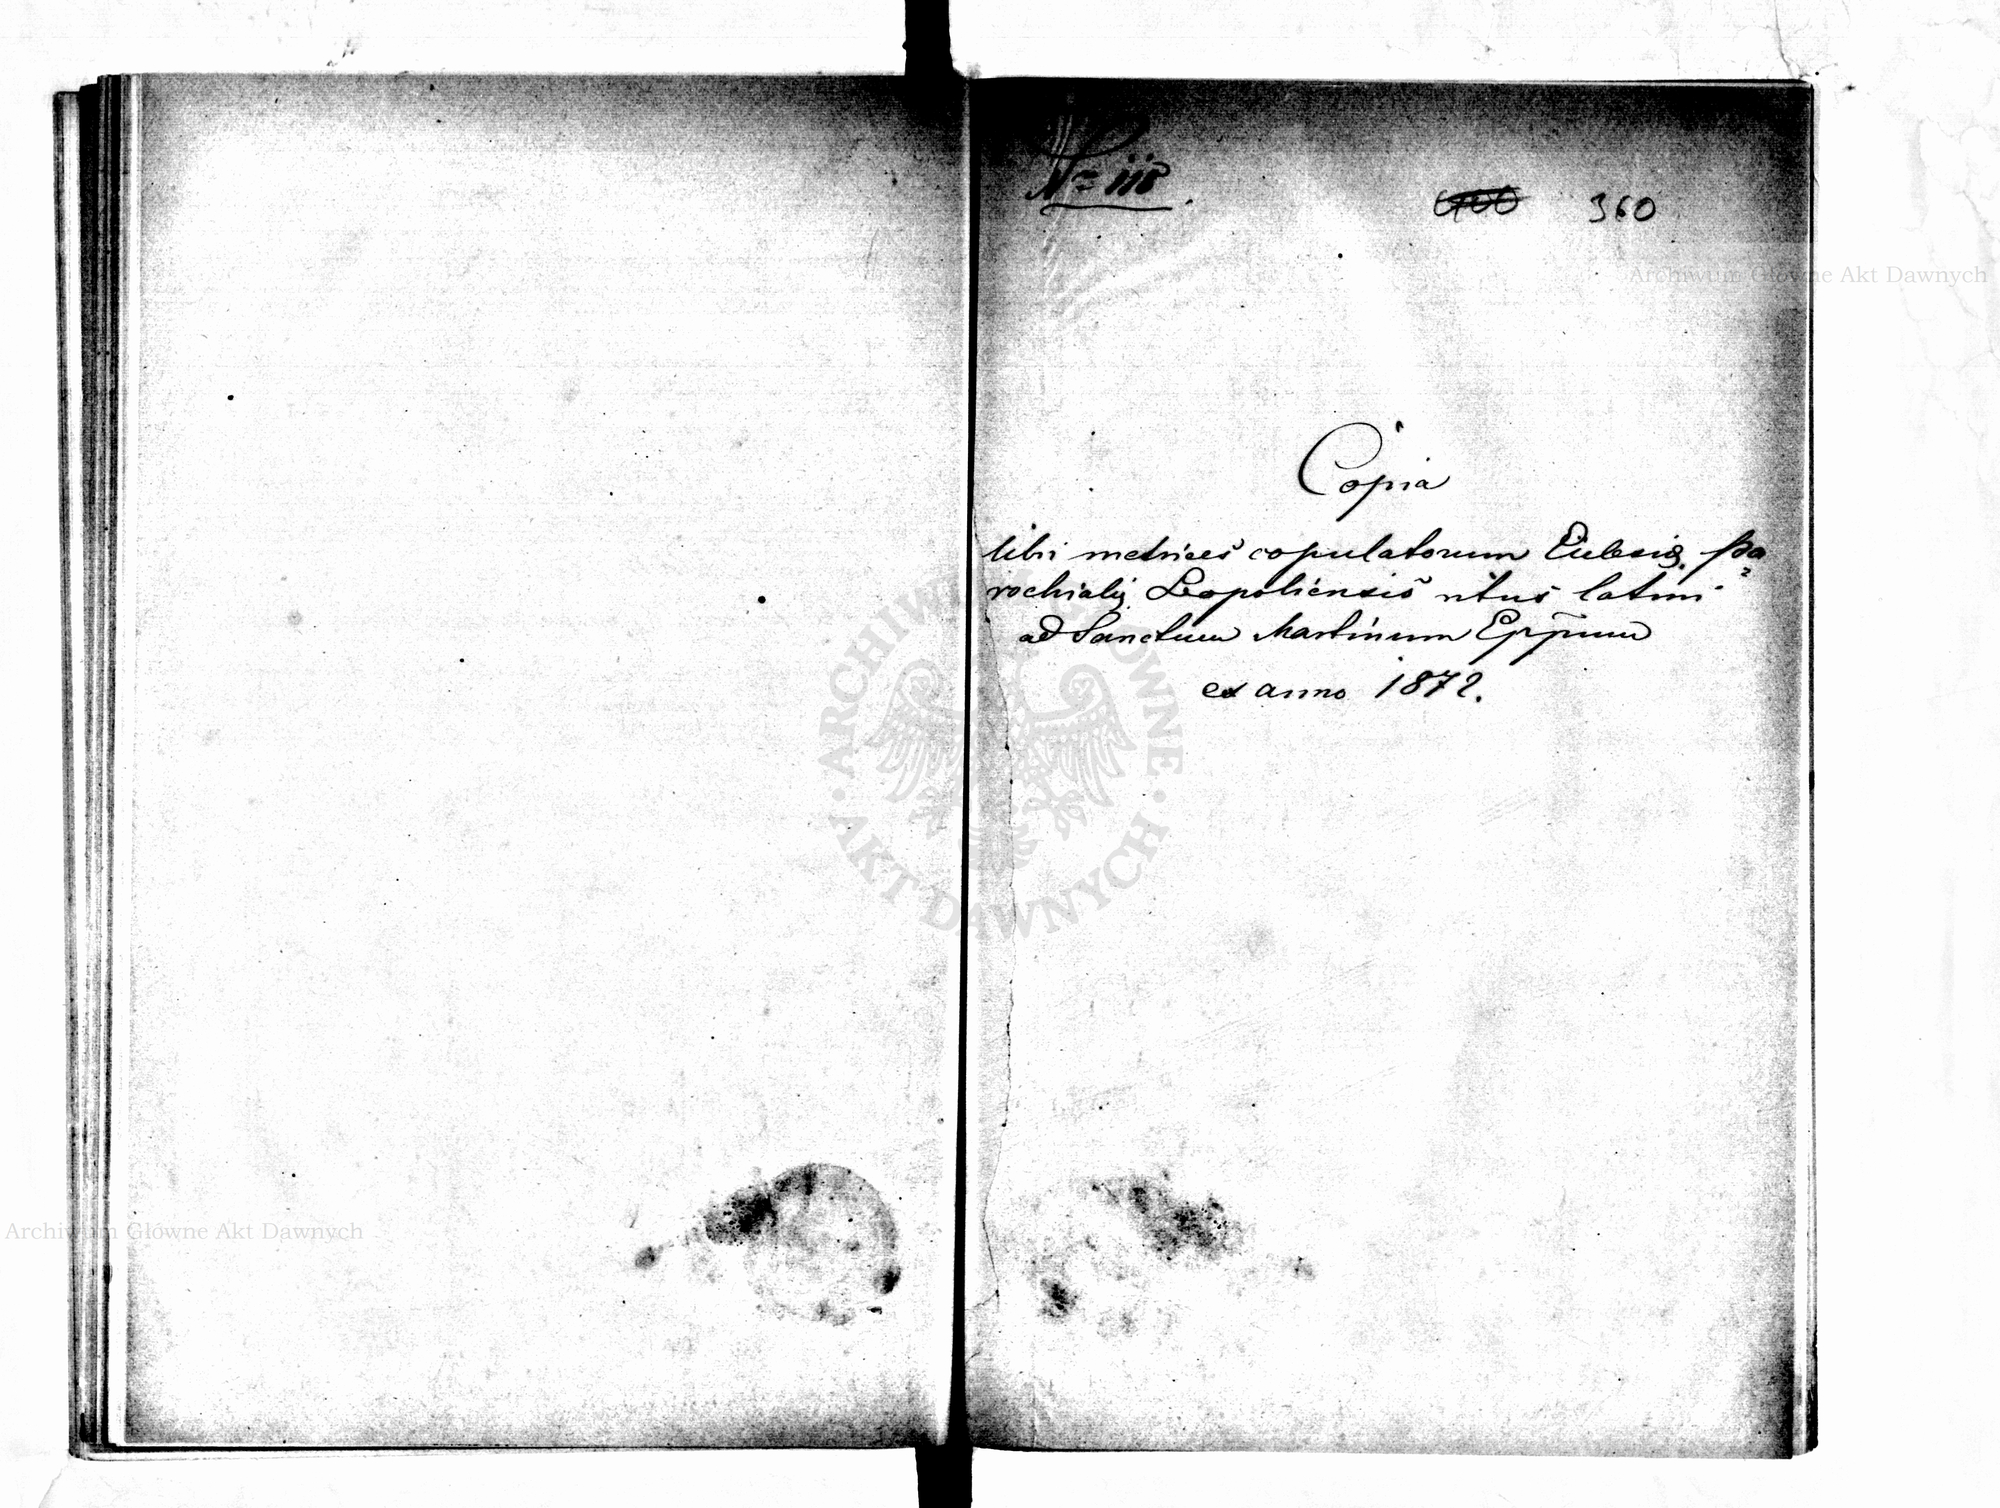 No 118.
360
Archiwum Główne Akt Dawnych
Copia
libri metrices copulatorum Ecclesiæ pa=
rochialis Leopoliensis ritus latini
ad Sanctum Martinum Eppum
ex anno 1872.
ARCHIWUM GŁÓWNE
AKT DAWNYCH
Archiwum Główne Akt Dawnych